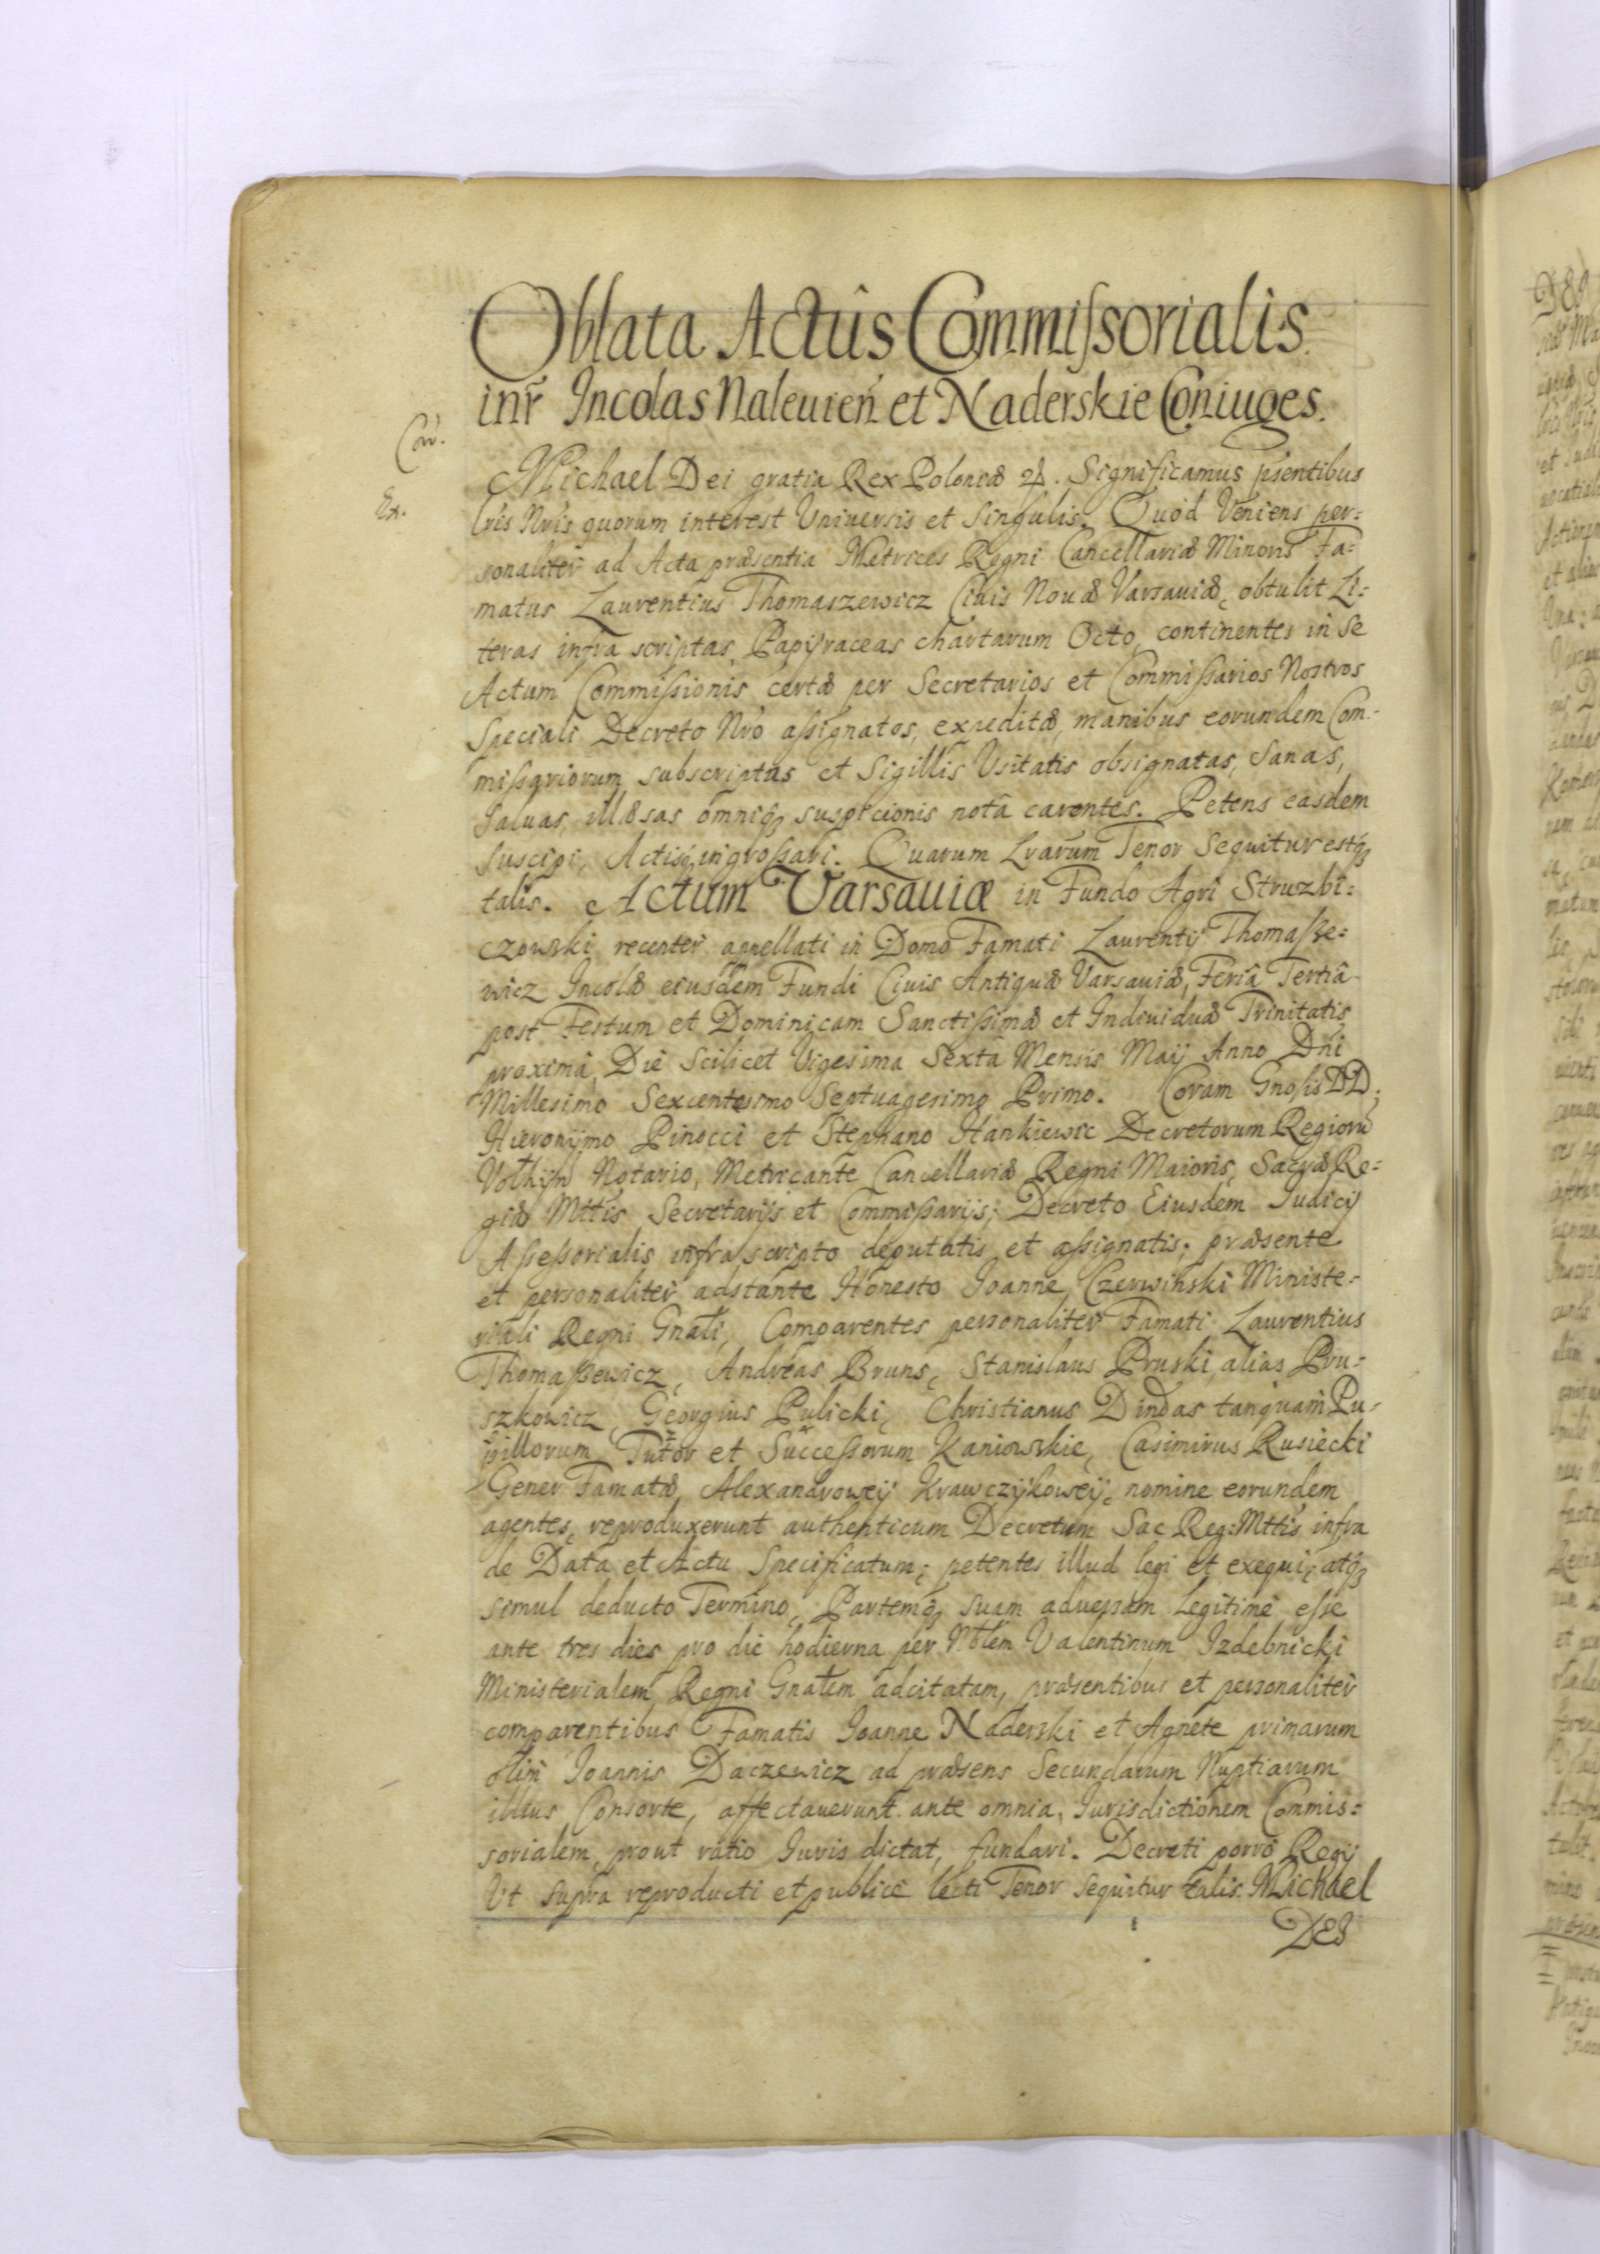 Oblata Actûs Commissorialis
intr Incolas Naleuien et Naderskie Coniuges.
Con.
Ex.
Michael Dei gratia Rex Poloniæ etc. Significamus psentibus
lris Nris quorum interest Vniuersis et Singulis. Quod Veniens per=
sonaliter ad Acta præsentia Metrices Regni Cancellariæ Minoris Fa=
matus Laurentius Thomaszewicz Ciuis Nouæ Varsauiæ, obtulit Li=
teras infra scriptas, Papÿraceas chartarum Octo, continentes in se
Actum Commissionis, certæ per Secretarios et Commissarios Nostros
Speciali Decreto Nro assignatos, expeditæ, manibus eorundem Com=
missariorum subscriptas et Sigillis Vsitatis obsignatas, Sanas,
Saluas, illæsas omniq3 suspicionis notâ carentes. Petens easdem
suscipi, Actisq3 ingrossari. Quarum Lrarum Tenor Sequitur estq3
talis. Actum Varsauiæ in Fundo Agri Struzbi=
czowski recenter appellati in Domo Famati Laurentij Thomasze=
wicz Incolæ eiusdem Fundi Ciuis Antiquæ Varsauiæ, Feriâ Tertiâ
post Festum et Dominicam Sanctissimæ et Indiuiduæ Trinitatis
proximâ, Die Scilicet Vigesima Sextâ Mensis Maij Anno Dni
Millesimo Sexcentesimo Septuagesimo Primo. Coram Gnosis DD:
Hieronÿmo Pinocci et Stephano Hankiewic Decretorum Regiorū
Volhÿn Notario, Metricante Cancellariæ Regni Maioris, Sacræ Re=
giæ Mttis Secretarijs et Commissarijs; Decreto Eiusdem Iudicij
Assessorialis infra scripto deputatis et assignatis; præsente
et personaliter adstante Honesto Ioanne Czerwinski Ministe=
riali Regni Gnali, Comparentes personaliter Famati Laurentius
Thomassewicz, Andreas Bruns, Stanislaus Pruski alias Pru=
szkowicz, Georgius Pulicki, Christianus Dindas tanquam Pu=
pillorum Tutor et Successorum Kaniowskie, Casimirus Rusiecki
Gener Famatæ Alexandroweÿ Krawczÿkoweÿ, nomine eorundem
agentes, reproduxerunt authenticum Decretum Sac Reg: Mttis infra
de Data et Actu Specificatum; petentes illud legi et exequi, atq3
simul deducto Termino, Partemq3 suam aduersam legitimè esse
ante tres dies pro die hodierna per Nblem Valentinum Izdebnicki
Ministerialem Regni Gnalem adcitatam, præsentibus et personaliter
comparentibus Famatis Ioanne Naderski et Agnete primarum
olim Ioannis Daczewicz ad præsens Secundarum Nuptiarum
illius Consorte, affectauerunt ante omnia, Iurisdictionem Commis=
sorialem, prout ratio Iuris dictat, fundari. Decreti porrò Regij
Vt supra reproducti et publicè lecti Tenor sequitur talis. Michael
DEI